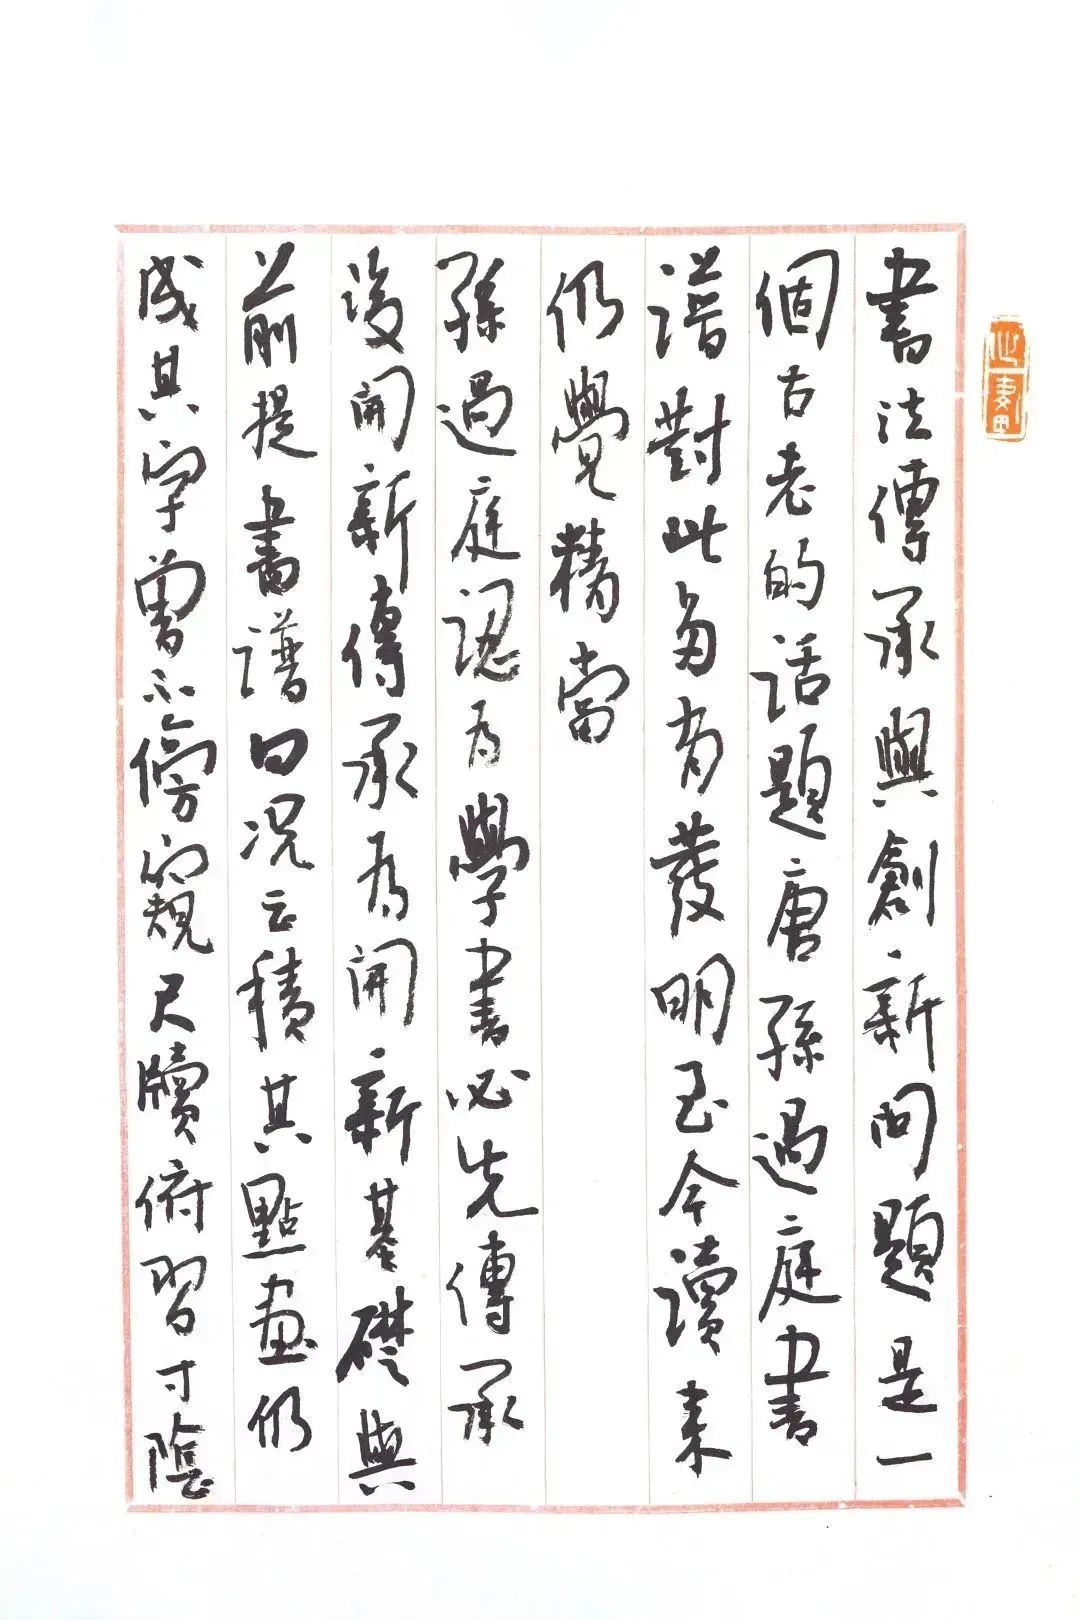 書法傳承與創新問題是一
個古老的话題唐孫過庭書
譜對此多有發明至今讀来
仍覺精當
孫過庭認为學書必先傳承
後開新傳承为開新基礎與
前提書譜曰况云積其點畫仍
成其字曾不傍窺尺牘俯習寸陰